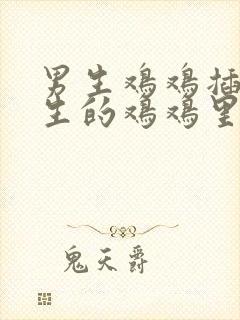 男生鸡鸡插
生的鸡鸡里
鬼天爵